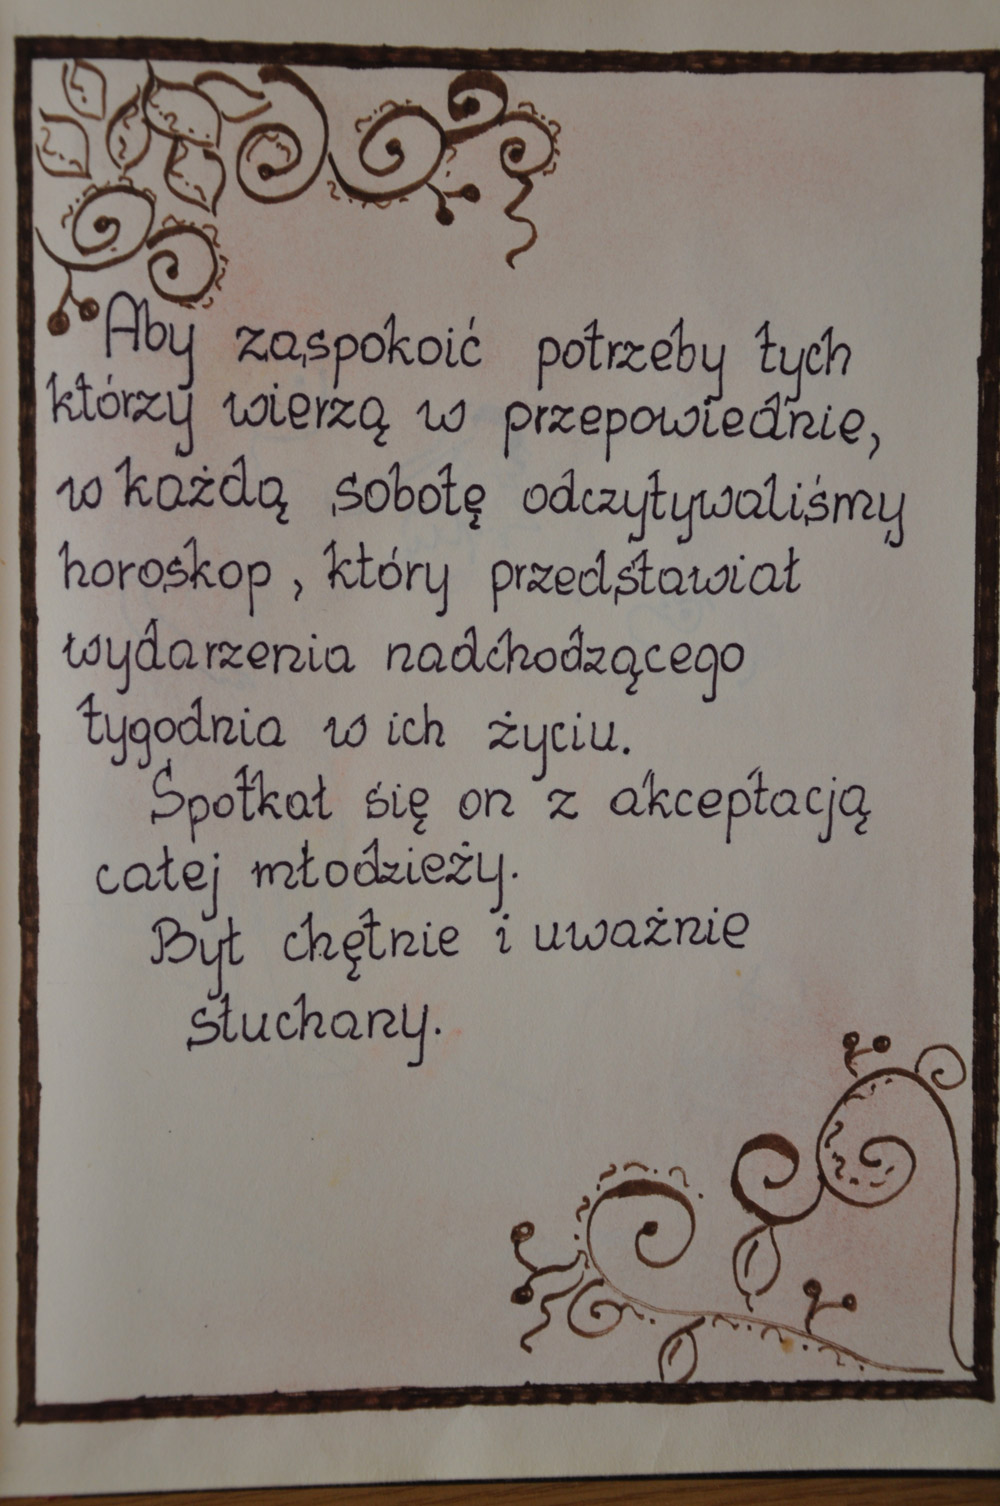 Aby zaspokoić potrzeby tych
którzy wierzą w przepowiednie,
w każdą sobotę odczytywaliśmy
horoskop, który przedstawiał
wydarzenia nadchodzącego
tygodnia w ich życiu.
Spotkał się on z akceptacją
całej młodzieży.
Był chętnie i uważnie
słuchany.